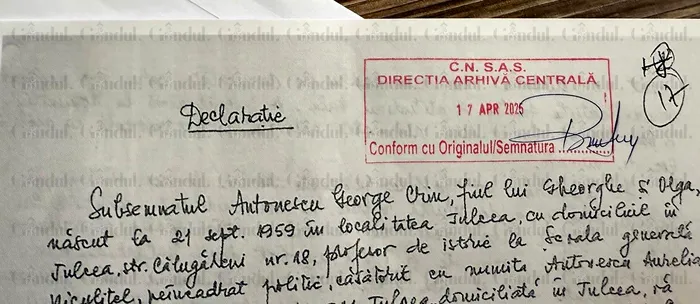 C.N.S.A.S.
DIRECȚIA ARHIVĂ CENTRALĂ
17 APR 2025
Conform cu Originalul/Semnatura
17
Declarație
Subsemnatul Antonescu George Crin, fiul lui Gheorghe și Olga,
născut la 21 sept. 1959 în localitatea Tulcea, cu domiciliul în
Tulcea, str. Călugăreni nr. 18, profesor de istorie la Școala generală
Niculițel, neîncadrat politic, căsătorit cu numita Antonescu Aurelia
Tulcea, domiciliată în Tulcea,